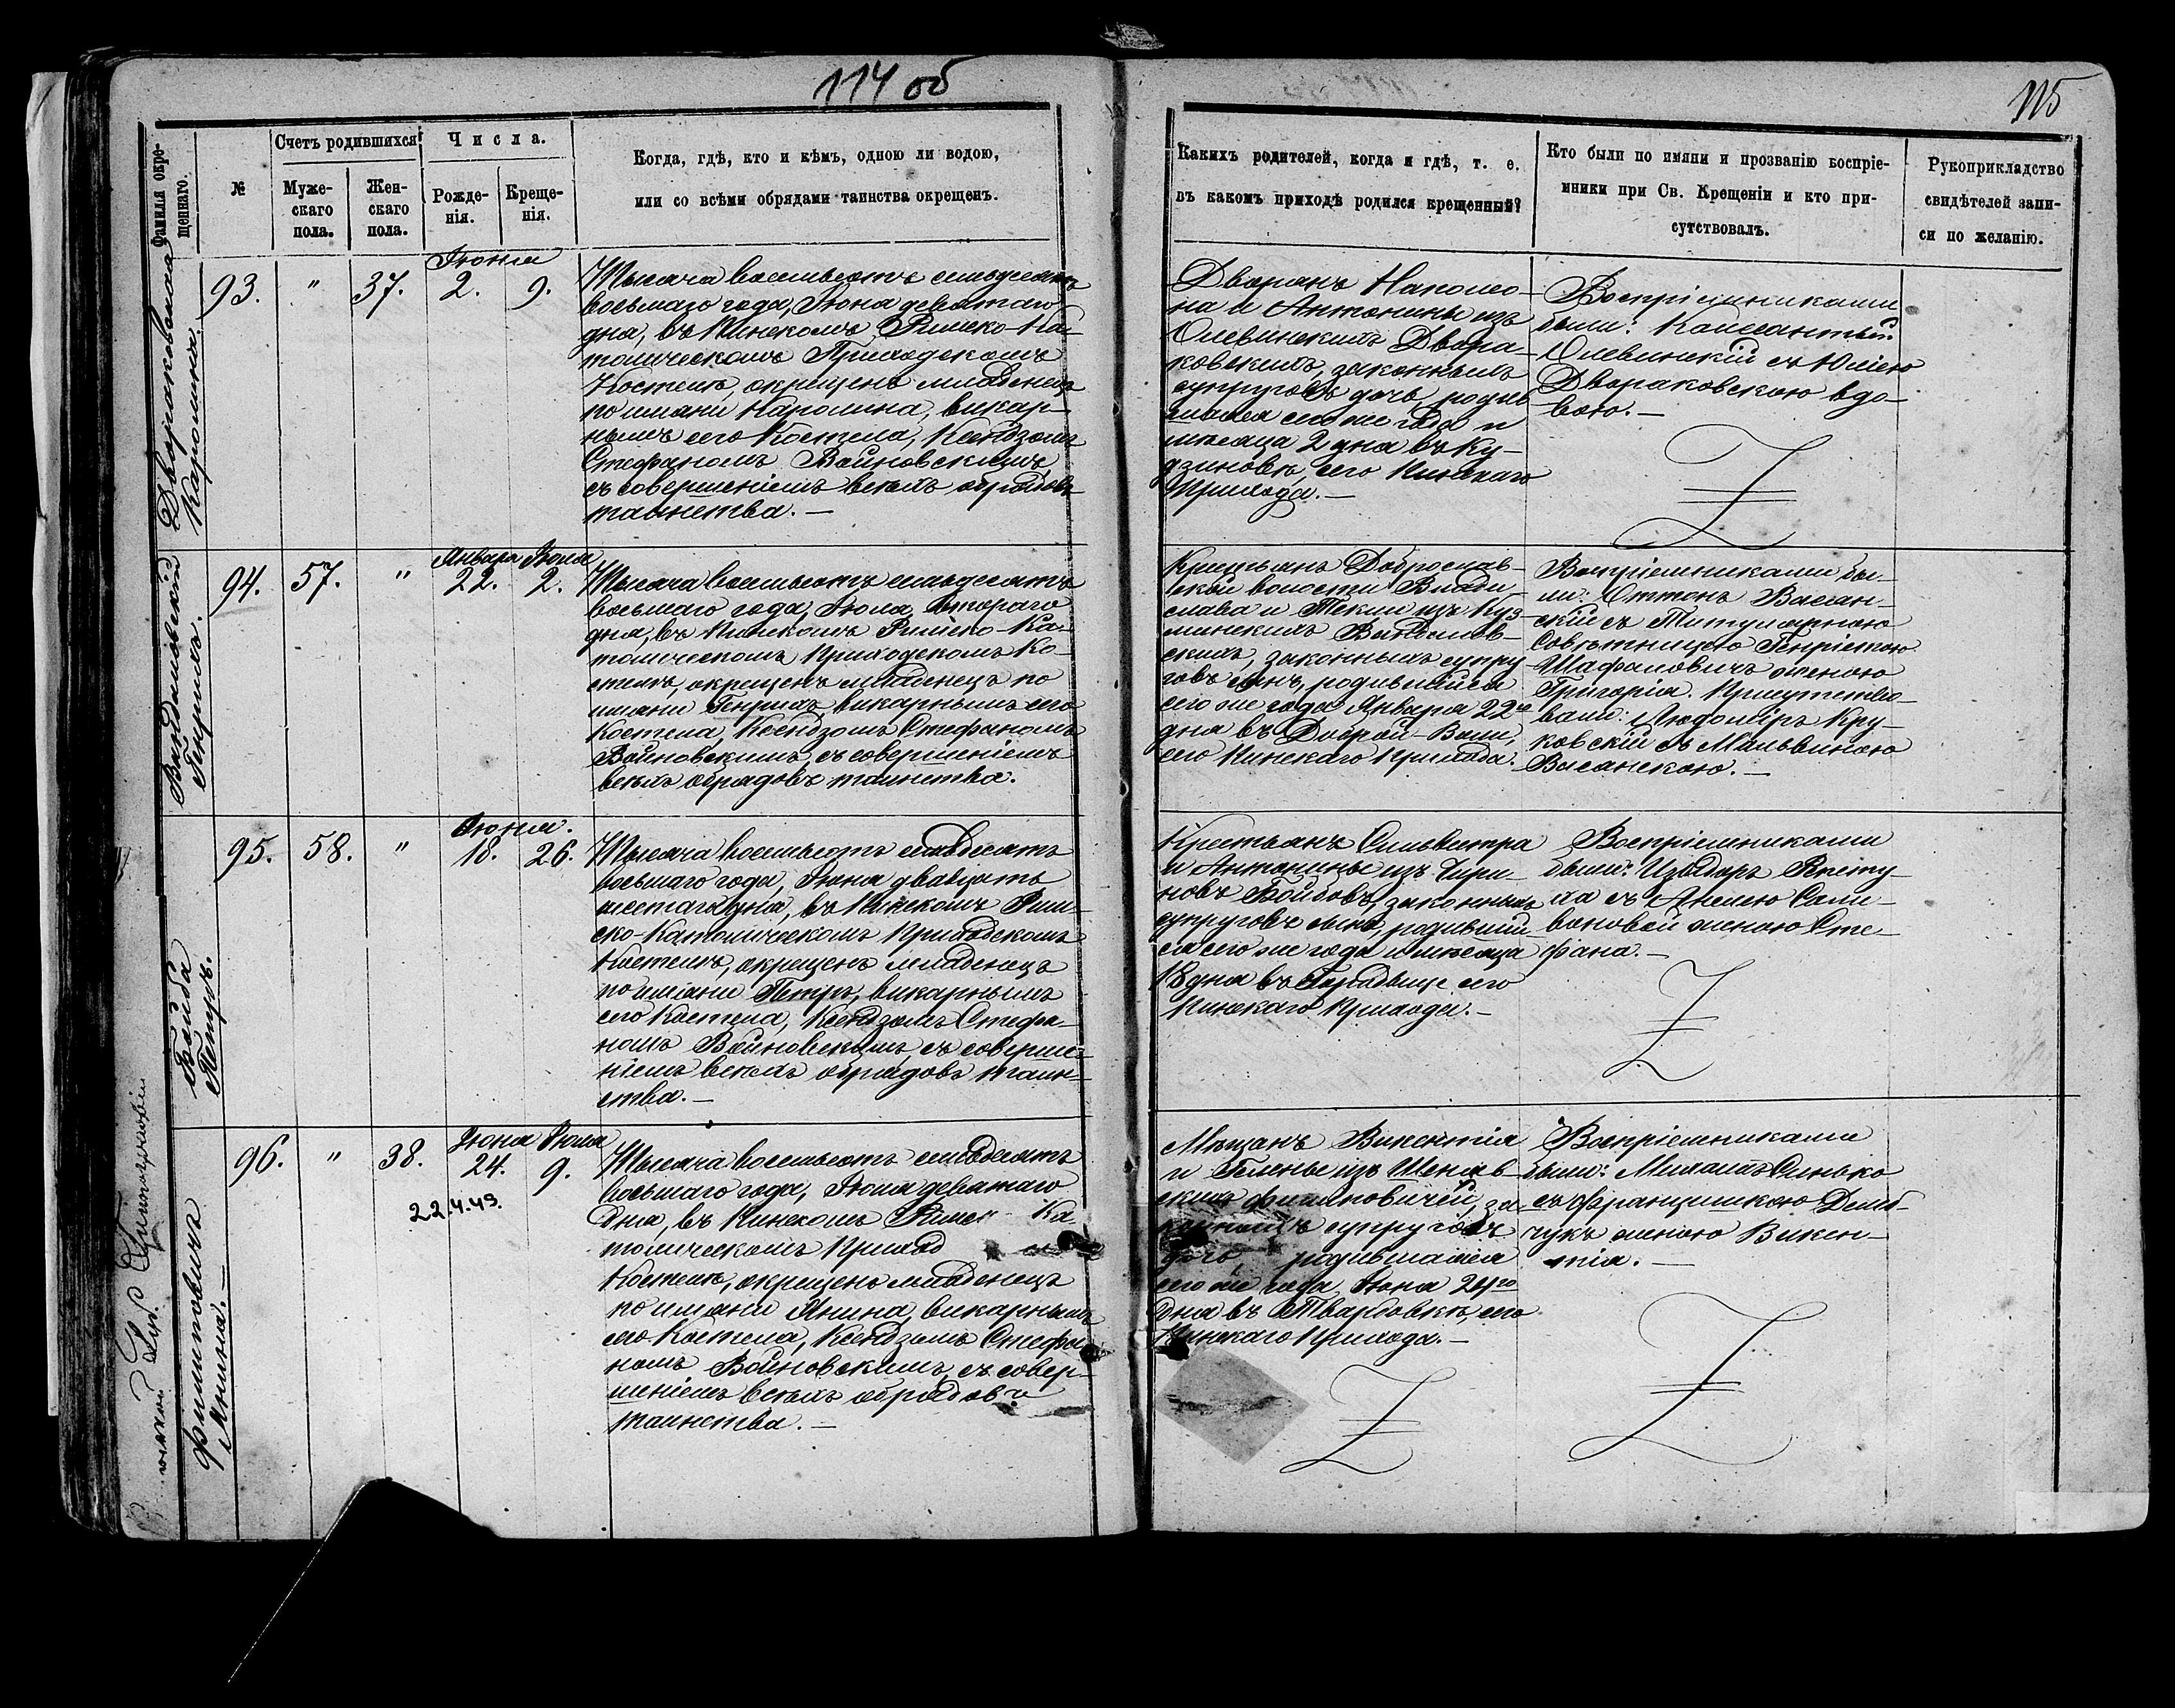 114 об
115
Фамилія окре-
щеннаго.
№
Счетъ родившихся
Муже-
скаго
пола.
Жен-
скаго
пола.
Числа.
Рожде-
нія.
Креще-
нія.
Когда, гдѣ, кто и кѣмъ, одною ли водою,
или со всѣми обрядами таинства окрещенъ.
Какихъ родителей, когда и гдѣ, т. е.
въ какомъ приходѣ родился крещенный?
Кто были по имяни и прозванію воспріе-
мники при Св. Крещеніи и кто при-
сутствовалъ.
Рукоприкладство
свидѣтелей запи-
си по желанію.
Двораковская
Каролина.
93.
"
37.
Іюня
2. 9.
Тысяча восемьсотъ семьдесятъ
восьмаго года, Іюня девятаго
дня, въ Пинскомъ Римско-Ка-
толическомъ Приходскомъ
Костелѣ, окрещенъ младенецъ
по имяни Каролина, викар-
нымъ сего Костела, Ксендзомъ
Стефаномъ Войновскимъ,
съ совершеніемъ всѣхъ обрядовъ
таинства. —
Дворянъ Наполео-
на и Антонины изъ
Олевинскихъ Двора-
ковскихъ, законныхъ
супруговъ дочь, родив-
шаяся сего же года и
мѣсяца 2 дня въ Ку-
дзиновкѣ, сего Пинскаго
Прихода. —
Воспріемниками
были:
Олевинскій съ Юліею
Двораковскою вдо-
вою. —
Генрихъ.
94.
57.
"
Января Іюля
22. 2.
Тысяча восемьсотъ семьдесятъ
восьмаго года, Іюля втораго
дня, въ Пинскомъ Римско-Ка-
толическомъ Приходскомъ Ко-
стелѣ, окрещенъ младенецъ по
имяни Генрихъ викарнымъ сего
Костела, Ксендзомъ Стефаномъ
Войновскимъ, съ совершеніемъ
всѣхъ обрядовъ таинства.
Крестьянъ Доброслав-
ской волости Влади-
слава и Теклии изъ Куз-
минскихъ
скихъ, законныхъ супру-
говъ сынъ, родившійся
сего же года Января 22го
дня въ Доброй-Воли,
сего Пинскаго Прихода.
Воспріемниками бы-
ли: Оттонъ Васан-
скій съ Титулярною
Совѣтницею Генріетою
Шафаловичъ женою
Григорія. Присутство-
вали: Людоміръ Кру-
ковскій съ Мальвиною
Васанскою. —
Бойба
Петръ.
95.
58.
"
Іюня.
18. 26.
Тысяча восемьсотъ семьдесятъ
восьмаго года, Іюня двадцать
шестаго дня, въ Пинскомъ Рим-
ско-Католическомъ Приходскомъ
Костелѣ, окрещенъ младенецъ
по имяни Петръ, викарнымъ
сего Костела, Ксендзомъ Стефа-
номъ Войновскимъ, съ соверше-
ніемъ всѣхъ обрядовъ таин-
ства. —
Крестьянъ Сильвестра
и Антонины изъ Чири-
новъ Бойбовъ, законныхъ
супруговъ сынъ, родивший-
ся сего же года и мѣсяца
18 дня въ Городище сего
Пинскаго Прихода. —
Воспріемниками
были: Изыдоръ
ха съ Анелею Сели-
вановой женою Сте-
фана. —
Филиповичъ
Янина. —
96.
"
38.
Іюня Іюля
24. 9.
22.4.49.
Тысяча восемьсотъ семьдесятъ
восьмаго года, Іюля девятаго
дня, въ Пинскомъ Римск Ка-
толическомъ Приход
Костелѣ, окрещенъ младенецъ
по имяни Янина, викарнымъ
сего Костела, Ксендзомъ Стефа-
номъ Войновскимъ, съ совер-
шеніемъ всѣхъ обрядовъ
таинства. —
Мѣщанъ Викентія
и Гелены изъ
скихъ Филиповичей, за-
конныхъ супруговъ
дочь, родившаяся
сего же года Іюня 24го
дня въ Твардовкѣ, сего
Пинскаго Прихода. —
Воспріемниками
были: Михаилъ Синько
съ Францишкою Демб-
чукъ женою Викен-
тія. —